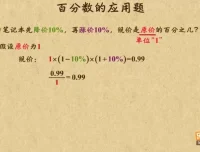 百分数的应用题
笔记本先降价10%,再涨价10%,现价是原价的百分之几?
单位“1”
假设原价为1
现价: 1×(1-10%)×(1+10%)=0.99
0.99
1
=0.99